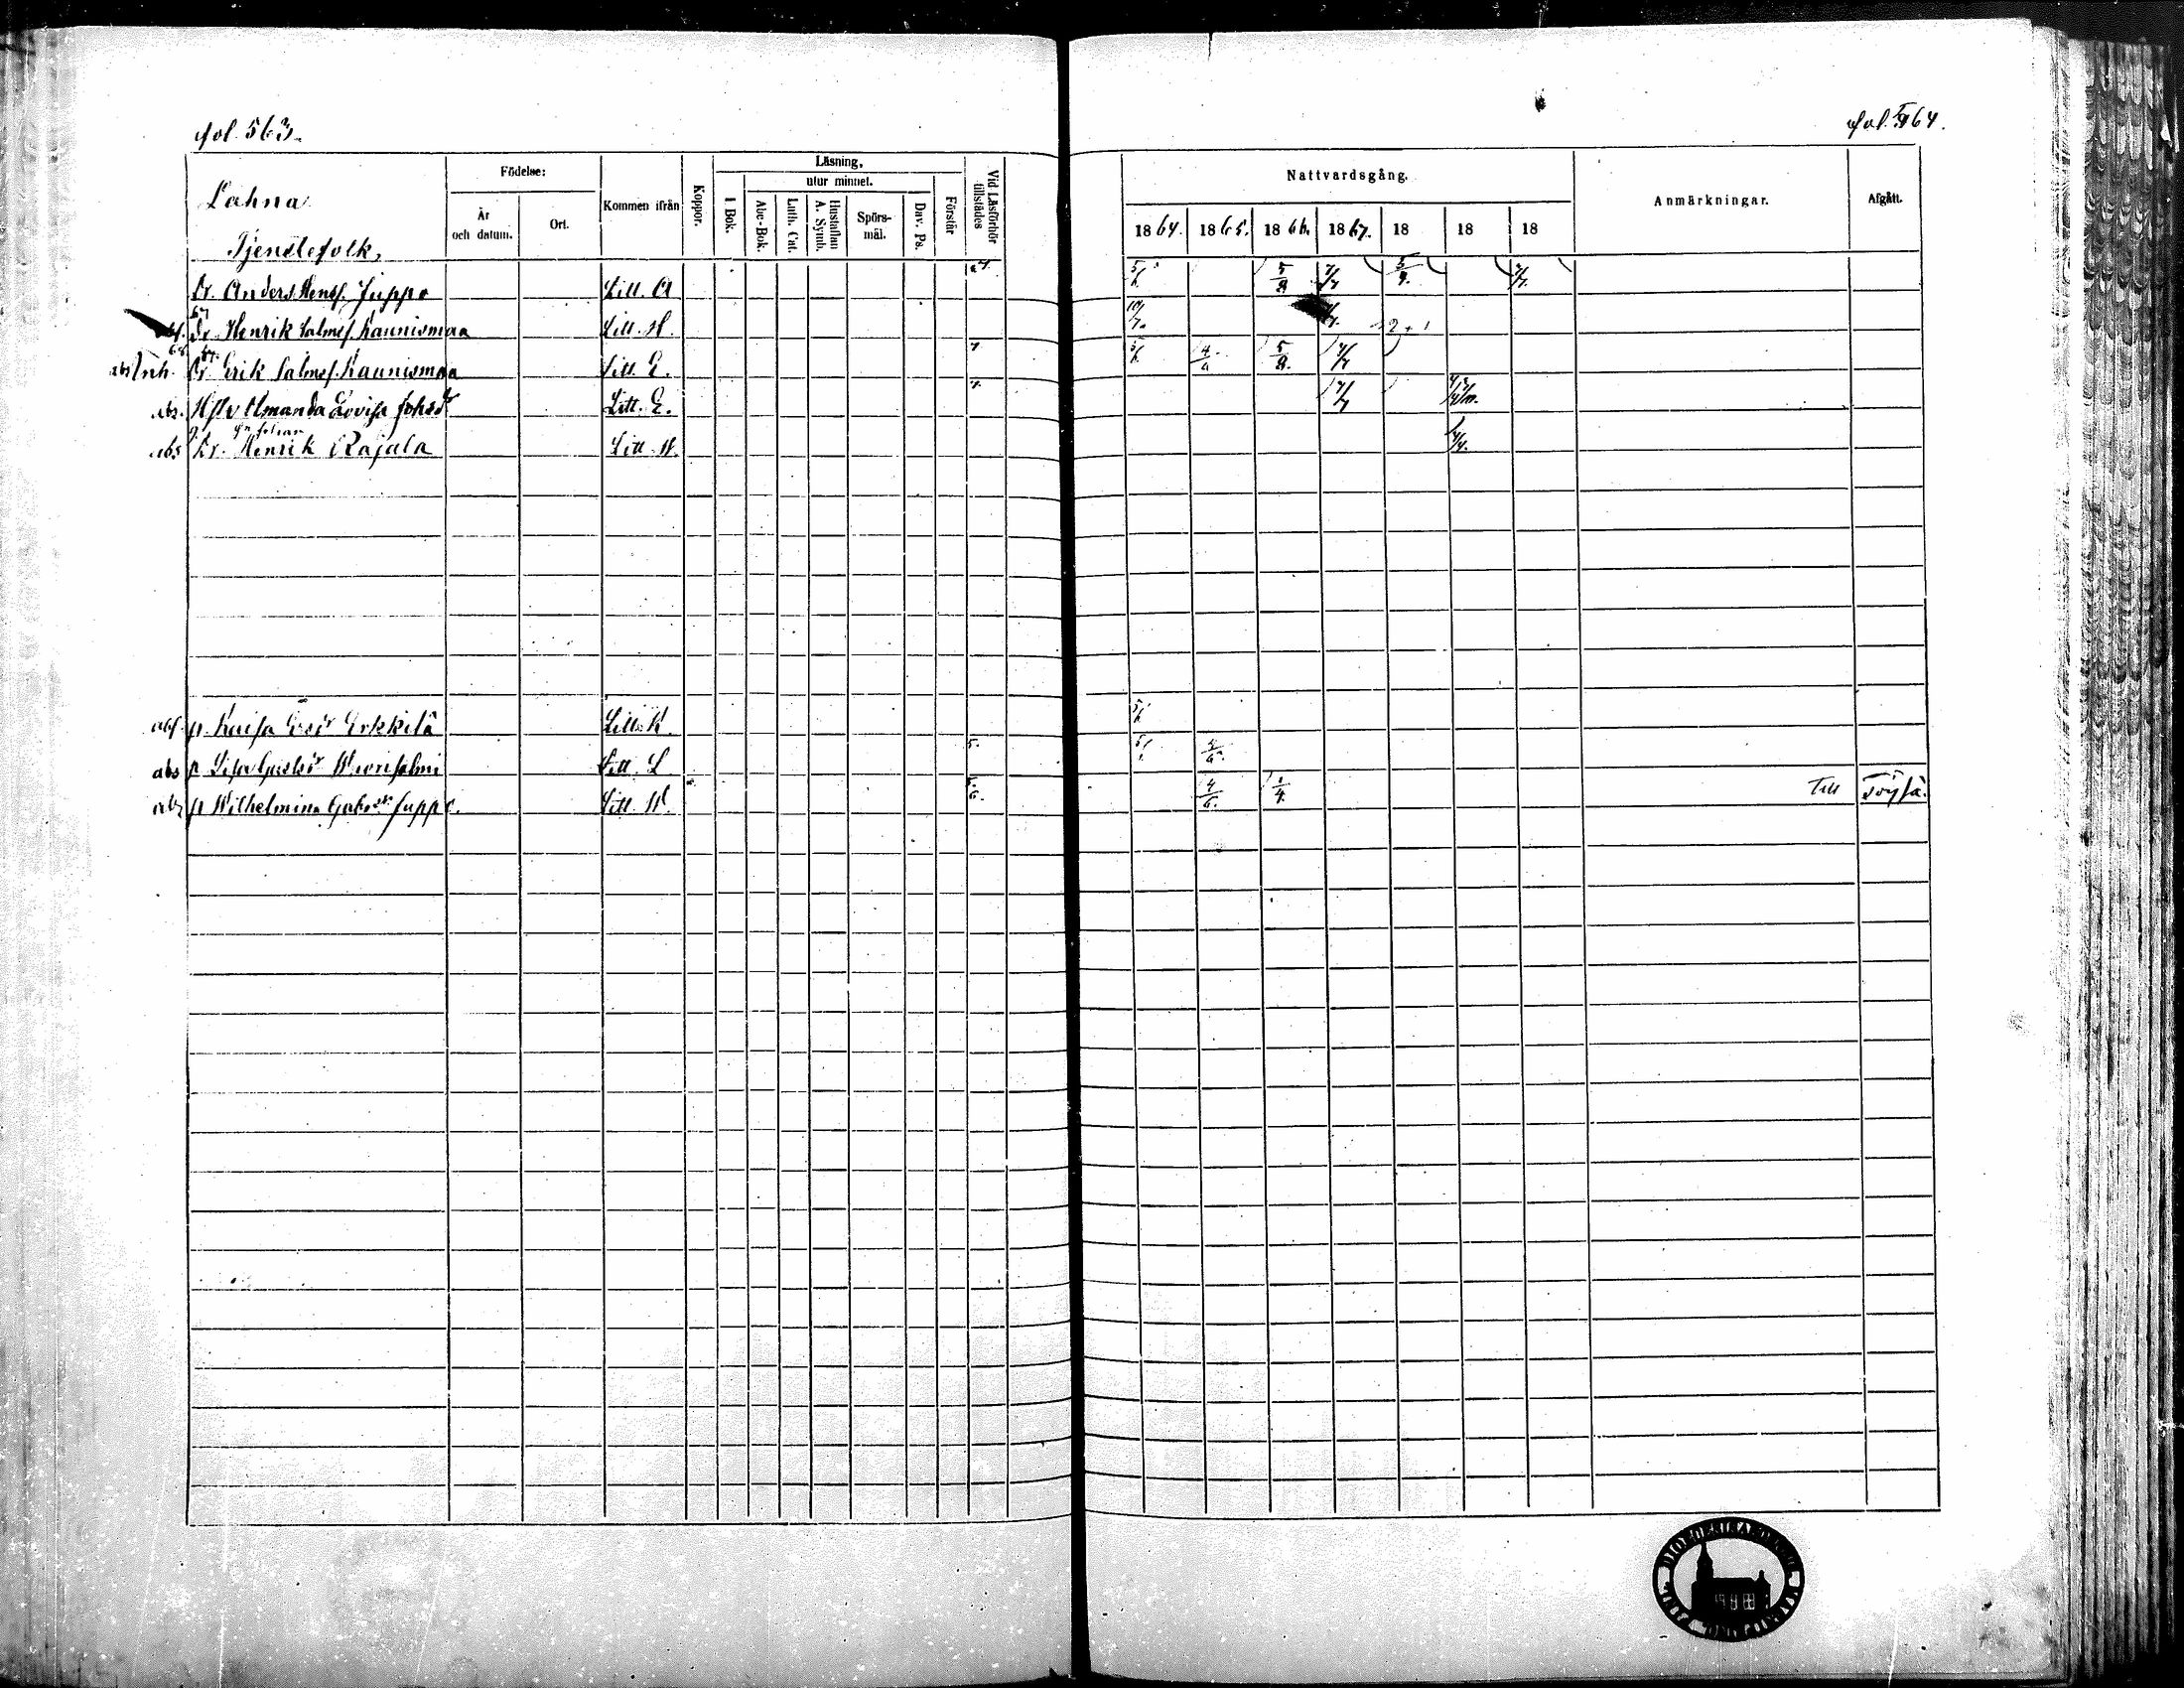 fol. 563.
Lahna
Tjenstefolk,
Födelse:
År och datum.
Ort.
Kommen ifrån
Koppor.
Läsning,
I Bok.
utur minnet.
Abc-Bok.
Luth. Cat.
Hustaflan A. Symb.
Spörs-mål.
Dav. Ps.
Förstår
Vid Läsförhör tillstädes
Dr. Anders Henrs. Juppo Litt. A
67
Dr Henrik Salms. Kaunismaa Litt. H.
68
abs Inh. Dr. Erik Salms. Kaunismaa Litt. E. 7.
abs. Hst. Amanda Lovisa Johsdr Litt. E. 7.
abs Dr. Henrik Rajala Litt. H.
abs. p. Kaisa Ersdr Erkkilä Litt. K.
abs p Lisa Gustsdr Wiorisalmi Litt. L 5.
abs p Wilhelmina Gabrsdr Juppo. Litt. W. 5. 6.
fol. 564.
Nattvardsgång.
1864. 1865. 1866. 1867. 18 18 18
Anmärkningar.
Afgått.
5/6 5/8 7/7 5/9. 7/7.
10/7. 2 + 1
5/6 4/6 5/8. 7/7
7/7
4/4.
5/6
5/6 4/6
4/6. 1/4. Till Töysä.